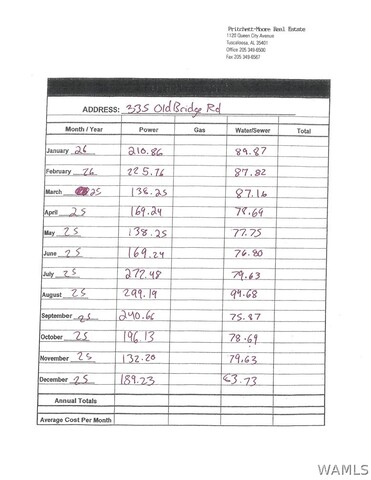 Pritchett-Moore Real Estate
1120 Queen City Avenue
Tuscaloosa, AL 35401
Office 205 349-6500
Fax 205 349-6567
ADDRESS: 335 Old Bridge Rd
Month / Year Power Gas Water/Sewer Total
January 26 210.86 89.87
February 26 225.76 87.82
March 25 138.25 87.16
April 25 169.24 78.69
May 25 138.25 77.75
June 25 169.24 76.80
July 25 272.48 79.63
August 25 299.19 94.68
September 25 240.66 75.87
October 25 196.13 78.69
November 25 132.20 79.63
December 25 189.23 63.73
Annual Totals
Average Cost Per Month
WAMLS